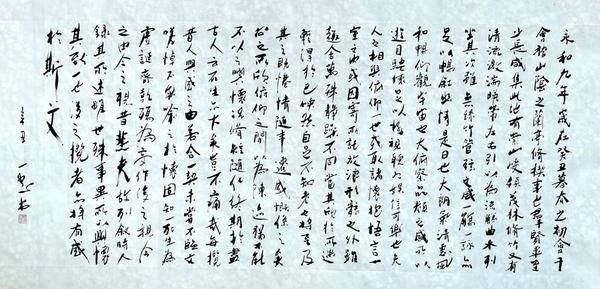 永和九年歲在癸丑暮春之初會于
會稽山陰之蘭亭修禊事也羣賢畢至
少長咸集此地有崇山峻領茂林修竹又有
清流激湍暎帶左右引以為流觴曲水列
坐其次雖無絲竹管弦之盛一觴一詠亦
足以暢敘幽情是日也天朗氣清惠風
和暢仰觀宇宙之大俯察品類之盛所以
遊目騁懷足以極視聽之娛信可樂也夫
人之相與俯仰一世或取諸懷抱悟言一
室之內或因寄所託放浪形骸之外雖
趣舍萬殊靜躁不同當其欣於所遇
蹔得於己快然自足不知老之將至及
其所之既惓情隨事遷感慨係之矣
向之所欣俛仰之間以為陳迹猶不能
不以之興懷況脩短隨化終期於盡
古人云死生亦大矣豈不痛哉每攬
昔人興感之由若合一契未嘗不臨文
嗟悼不能喻之於懷固知一死生為
虛誕齊彭殤為妄作後之視今亦
由今之視昔悲夫故列敘時人
錄其所述雖世殊事異所以興懷
其致一也後之攬者亦將有感
於斯文
辛丑 一 書